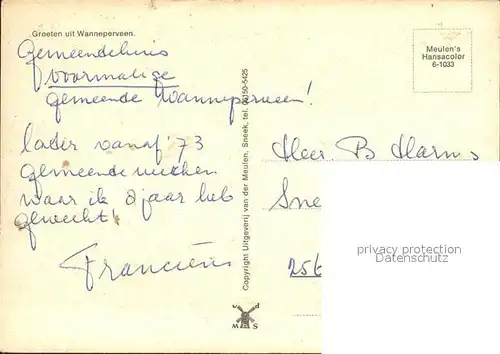 Groeten uit Wanneperveen.
Gemeentehuis
voormalige
gemeente Wanneperveen!
later vanaf '73
gemeente
waar ik 8 jaar heb
gewerkt!
Meulen's
Hansacolor
6-1033
Copyright Uitgeverij van der Meulen, Sneek, tel. 05150-5425
Heer. B Harms
Sne
256
privacy protection
Datenschutz
v d
M S